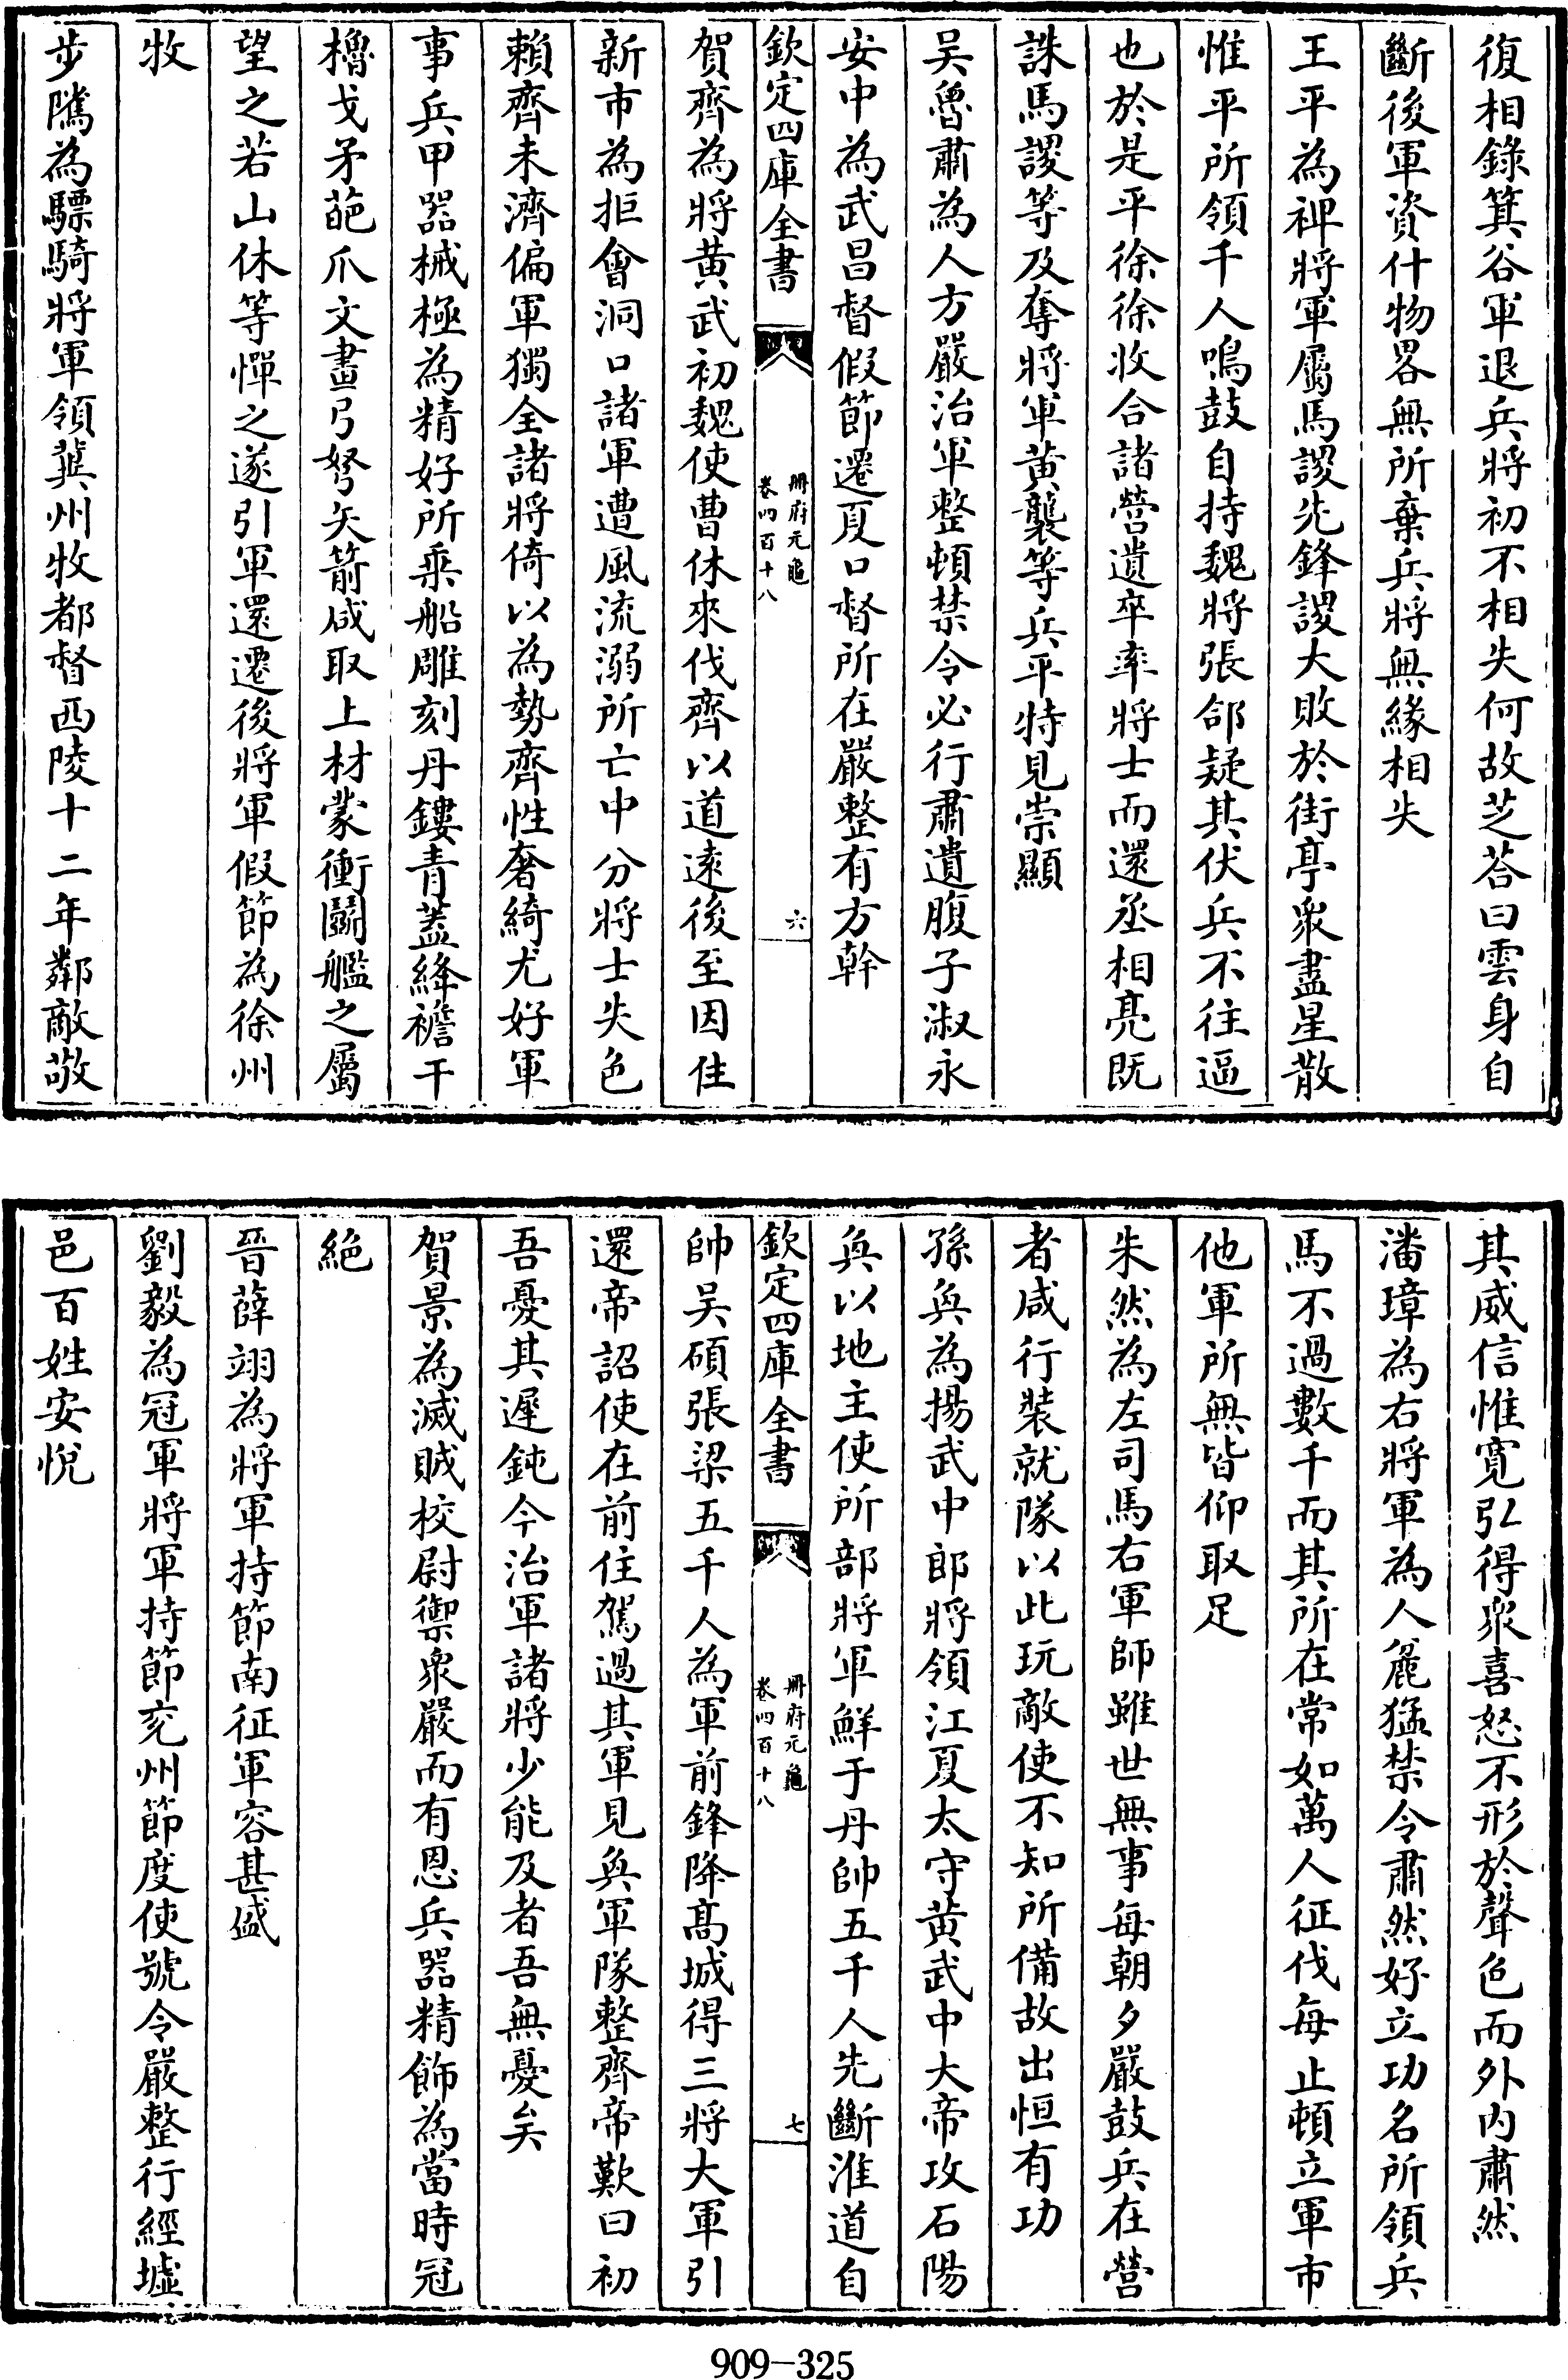 復相錄箕谷軍退兵將初不相失何故芝荅曰雲身自
斷後軍資什物畧無所棄兵將無緣相失
王平為裨將軍屬馬謖先鋒謖大敗於街亭衆盡星散
惟平所領千人鳴鼓自持魏將張郃疑其伏兵不往逼
也於是平徐徐收合諸營遺卒率將士而還丞相亮既
誅馬謖等及奪將軍黄襲等兵平特見崇顯
吴魯肅為人方嚴治軍整頓禁令必行肅遺腹子淑永
安中為武昌督假節遷夏口督所在嚴整有方幹
欽定四庫全書
冊府元龜
卷四百十八
六
賀齊為將黄武初魏使曹休來伐齊以道逺後至因住
新市為拒會洞口諸軍遭風流溺所亡中分將士失色
賴齊未濟偏軍獨全諸將倚以為勢齊性奢綺尤好軍
事兵甲器械極為精好所乘船雕刻丹鏤青蓋絳襜干
櫓戈矛葩爪文畫弓弩矢箭咸取上材蒙衝鬭艦之屬
望之若山休等憚之遂引軍還遷後將軍假節為徐州
牧
步隲為驃騎將軍領冀州牧都督西陵十二年鄰敵敬
其威信惟寛弘得衆喜怒不形於聲色而外内肅然
潘璋為右將軍為人麄猛禁令肅然好立功名所領兵
馬不過數千而其所在常如萬人征伐每止頓立軍市
他軍所無皆仰取足
朱然為左司馬右軍師雖世無事每朝夕嚴鼓兵在營
者咸行裝就隊以此玩敵使不知所備故出恒有功
孫奐為揚武中郎將領江夏太守黄武中大帝攻石陽
奐以地主使所部將軍鮮于丹帥五千人先斷淮道自
欽定四庫全書
冊府元龜
卷四百十八
七
帥吴碩張梁五千人為軍前鋒降髙城得三將大軍引
還帝詔使在前住駕過其軍見奐軍隊整齊帝歎曰初
吾憂其遲鈍今治軍諸將少能及者吾無憂矣
賀景為滅賊校尉禦衆嚴而有恩兵器精飾為當時冠
絶
晉薛翊為將軍持節南征軍容甚盛
劉毅為冠軍將軍持節兖州節度使號令嚴整行經墟
邑百姓安悅
909-325